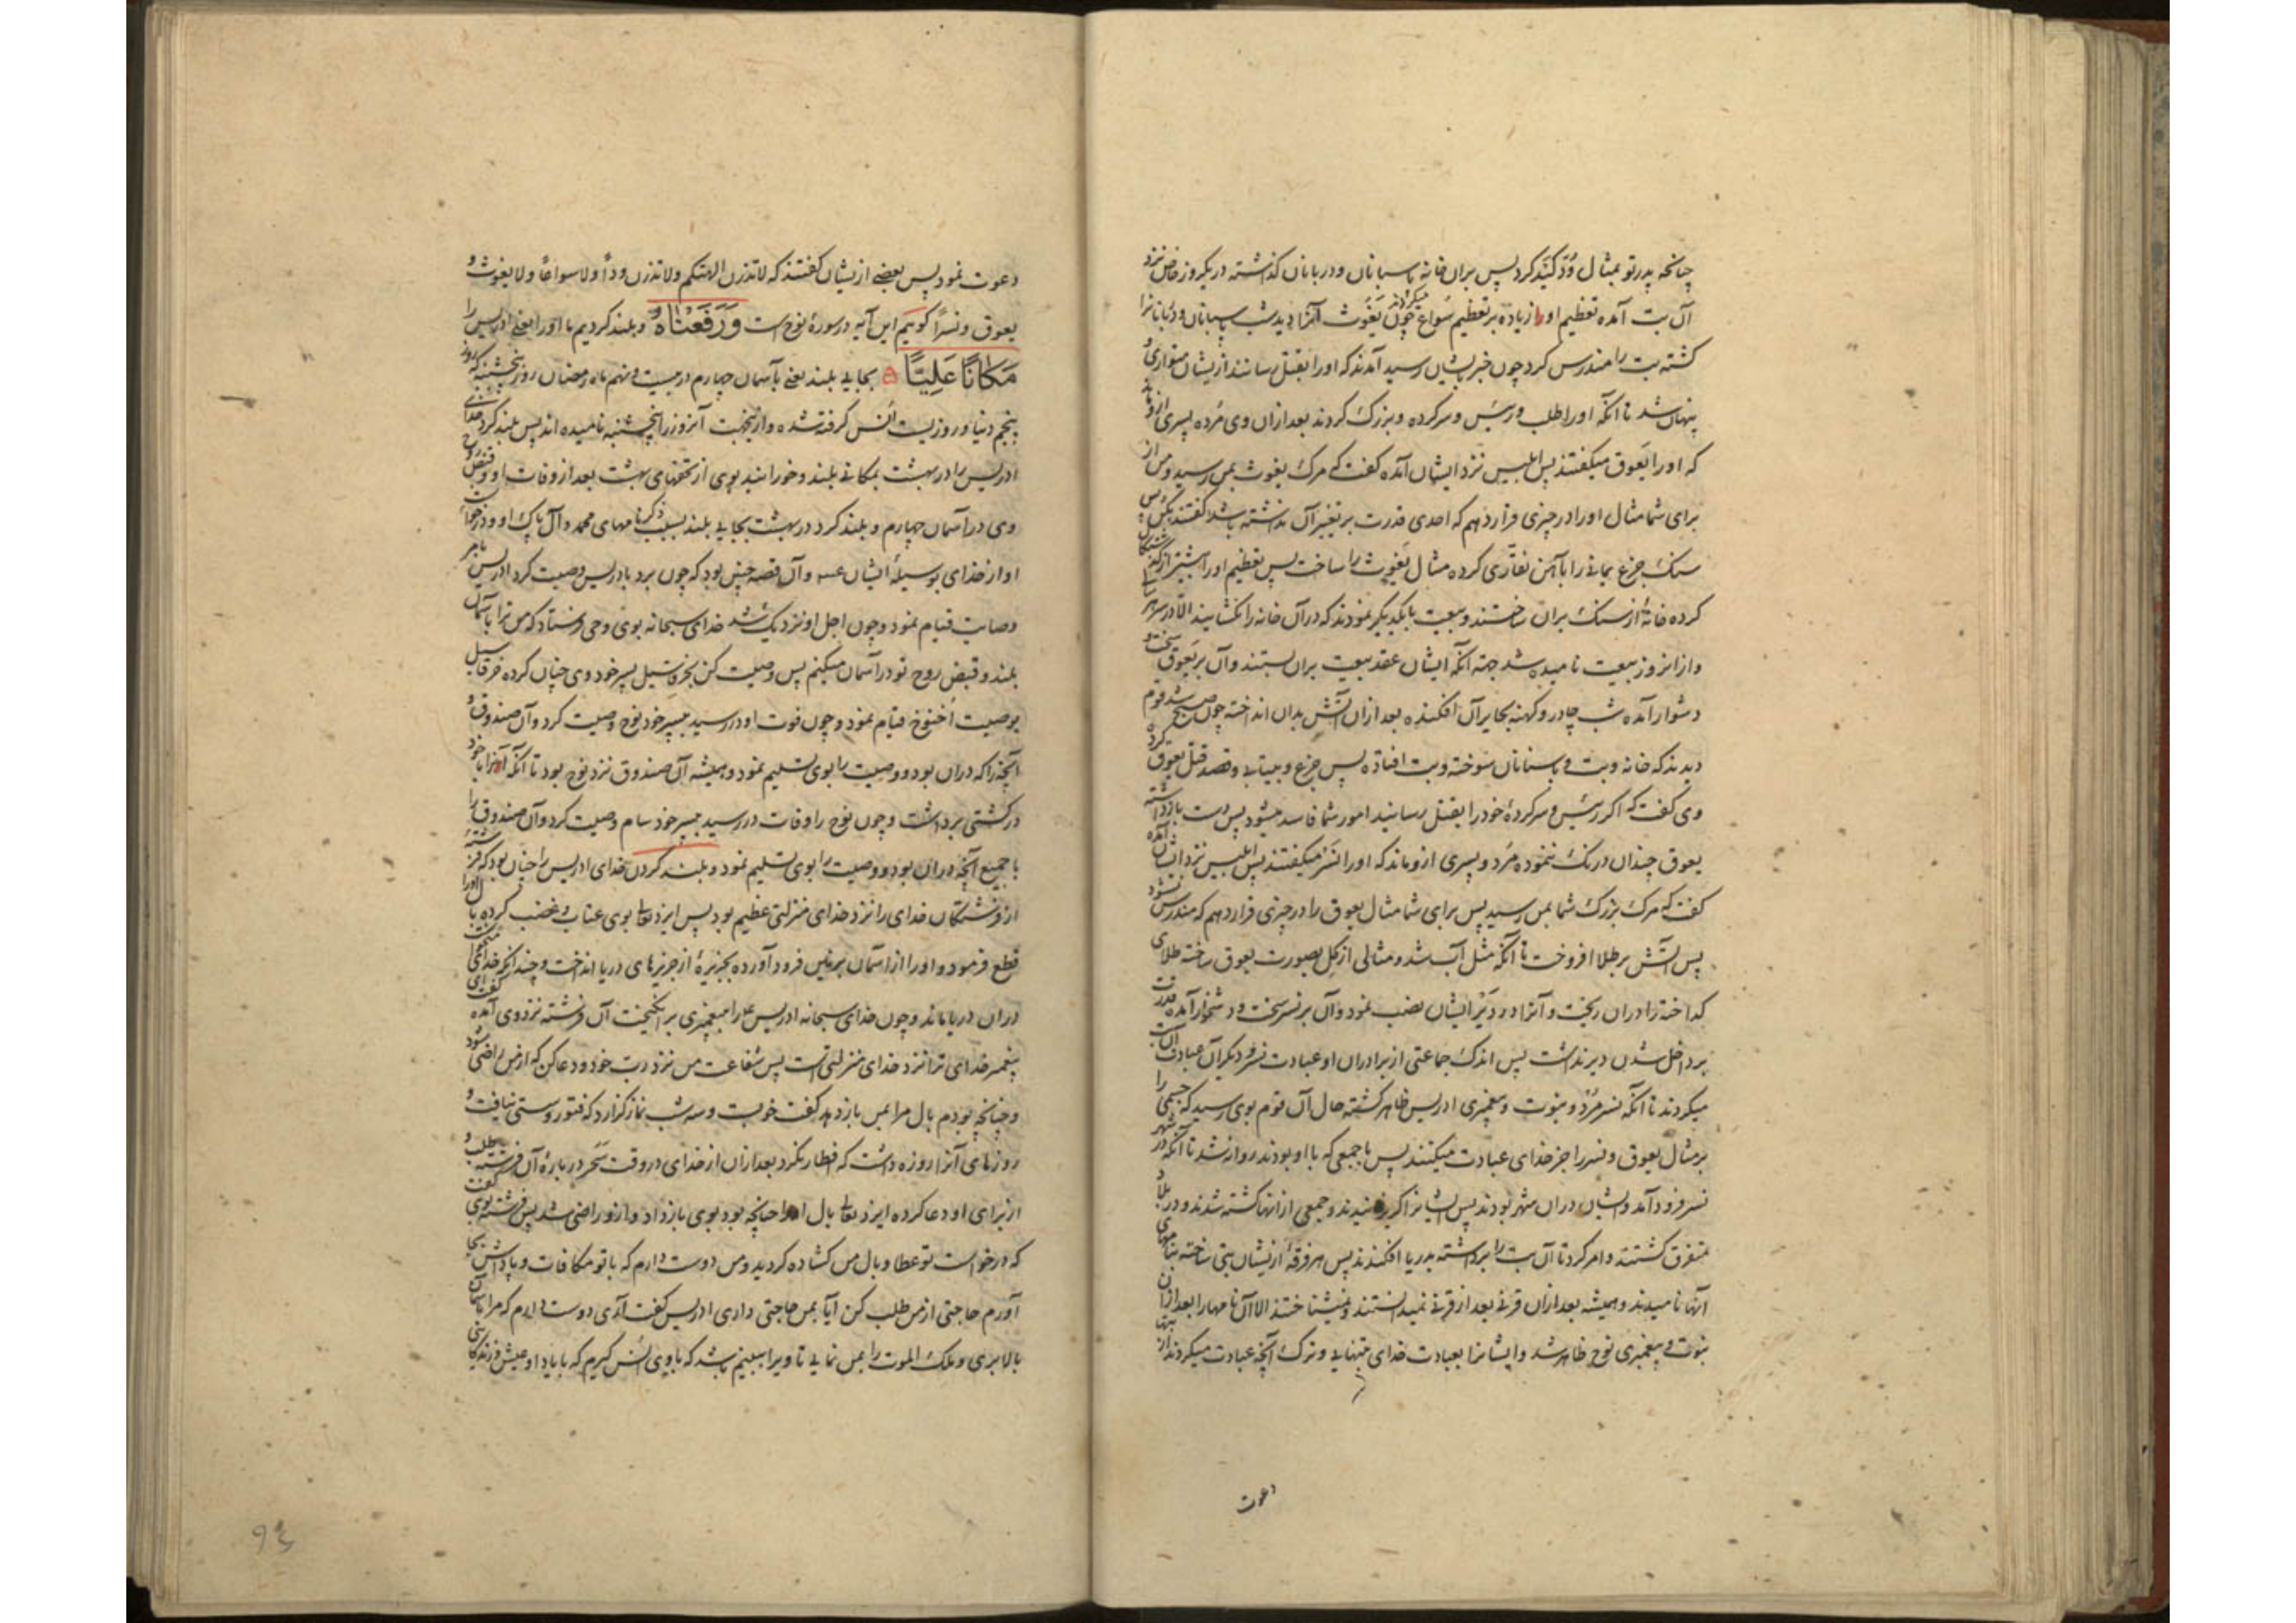 چنانچه پدر تو بمثال وُدّ کَیَد کرد پس بران خانه پاسبانان و دربانان گذاشته در یکروز خاص نزد
آن بت آمده تعظیم او را زیاده بر تعظیم سُواع میکردند چون یَغُوث آنرا دید شب پاسبانان و دربانانرا
کشته بت را مندرس کرد چون خبر بایشان رسید آمدند که او را بقتل رسانند ازیشان متواری و
پنهان شد تا آنکه او را طلب و رئیس و سرکرده و بزرگ کردند بعد ازان وی مُرده پسری ازو ماند
که او را یَعوق میگفتند پس ابلیس نزد ایشان آمده گفت که مرگ یغوث بمن رسید و من از
برای شما مثال او را در چیزی قرار دهم که احدی قدرت بر تغییر آن نداشته باشد گفتند بکن پس
سنگ جزع یمانی را با آهن نقّاری کرده مثال یَغوث را ساخت پس تعظیم او را بیشتر از گذشتگان
کرده خانهٔ از سنگ بران ساختند و بیعت با یکدیگر نمودند که در آن خانه را نگشایند الّا در سر هر
و از انروز بیعت نامیده شد جهة آنکه ایشان عقد بیعت بران بستند و آن بر یَعوق سخت و
دشوار آمده شب چادر و کهنه بجا بر آن افکنده بعد ازان آتش بدان انداخته چون صبح شد قوم
دیدند که خانه و بت و پاسبانان سوخته و بت افتاده پس جزع و بیتابی و قصد قتل یعوق کرده
وی گفت که اگر رئیس و سرکردهٔ خود را بقتل رسانید امور شما فاسد میشود پس دست باز داشته
یعوق چندان درنگ ننموده مُرد و پسری ازو ماند که او را نَسْر میگفتند پس ابلیس نزد ایشان آمده
گفت که مرگ بزرگ شما بمن رسید پس برای شما مثال یعوق را در چیزی قرار دهم که مندرس نشود
پس آتش بر طلا افروخت تا آنکه مثل آب شد و مثالی از گل بصورت یعوق ساخته طلای
گداخته را دران ریخت و آنرا در دَیْر ایشان نصب نمود و آن بر نسر سخت و دشوار آمده قدرت
بر داخل شدن دیر نداشت پس اندک جماعتی از برادران او عبادت نسر و دیگران عبادت آن بت
میکردند تا آنکه نسر مُرْد و نبوت و پیغمبری ادریس ظاهر گشته حال آن قوم بوی رسید که جسمی را
بر مثال یعوق و نسر را جز خدای عبادت میکنند پس با جمعی که با او بودند روانه شد تا آنکه در شهر
نسر فرود آمد و ایشان دران شهر بودند پس ایشانرا گریزانیدند و جمعی از انها کشته شدند و در بلاد
متفرق گشتند و امر کرد تا آن بت را برداشته بدریا افکندند پس هر فرقهٔ ازیشان بتی ساخته بنامهای
آنها نامیدند و همیشه بعد ازان قرنی بعد از قرنی نمیدانستند و نمیشناختند الا آن نامها را بعد ازان
نبوت و پیغمبری نوح ظاهر شد و ایشانرا بعبادت خدای بتنهایی و ترک آنچه عبادت میکردند از بتها
دعوت
دعوت نمود پس بعضی ازیشان گفتند که لا تذرن الهتکم ولا تذرن وداً ولا سواعاً ولا یغوث و
یعوق و نسراً گوییم این آیه در سورهٔ نوح است وَرَفَعْنَاهُ و بلند کردیم ما او را یعنی ادریس را
مَکَانًا عَلِیًّا بجایی بلند یعنی بآسمان چهارم در بیست و نهم ماه رمضان روز پنجشنبه که روز
پنجم دنیا و روزیست اُنس گرفته شده و ازینجهت آنروز را پنجشنبه نامیده اند پس بلند کرد خدای
ادریس را در بهشت بمکانی بلند و خورانید بوی از تحفهای بهشت بعد از وفات او و قبض روح
وی در آسمان چهارم و بلند کرد در بهشت بجایی بلند بسبب ذکر نامهای محمد و آل پاک او و درخواست
او از خدای بوسیلهٔ ایشان و آن قصه چنین بود که چون برد بادریس وصیت کرد ادریس بامر
وصایت قیام نمود و چون اجل او نزدیک شد خدای سبحانه بوی وحی فرستاد که من ترا بآسمان
بلند و قبض روح تو در آسمان میکنم پس وصیت کن بخرقاسیل پسر خود وی چنان کرده خرقاسیل
بوصیت اُخنوخ قیام نمود و چون فوت او در رسید بپسر خود نوح وصیت کرد و آن صندوق و
آنچه را که دران بود و وصیت را بوی تسلیم نمود و همیشه آن صندوق نزد نوح بود تا آنکه آنرا با خود
در کشتی برداشت و چون نوح را وفات در رسید بپسر خود سام وصیت کرد و آن صندوق را
با جمیع آنچه دران بود و وصیت را بوی تسلیم نمود و بلند کردن خدای ادریس را چنان بود که فرشتهٔ
از فرشتگان خدای را نزد خدای منزلتی عظیم بود پس ایزد تعالی بوی عتاب و غضب کرده بال او را
قطع فرمود و او را از آسمان بزمین فرود آورده بجزیرهٔ از جزیرهای دریا انداخت و چندانکه خدای میخواست
دران دریا ماند و چون خدای سبحانه ادریس را به پیغمبری برانگیخت آن فرشته نزد وی آمده گفت ای
پیغمبر خدای ترا نزد خدای منزلتی است پس شفاعت من نزد ربّ خود و دعا کن که از من راضی شود
و چنانچه بودم بال مرا بمن باز دهد گفت خوبست و سه شب نماز گزارد که فتور و سستی نیافت و
روزهای آنرا روزه داشت که افطار نکرد بعد ازان از خدای در وقت سَحَر در بارهٔ آن فرشته طلب و
از برای او دعا کرده ایزد تعالی بال او را چنانچه بود بوی باز داد و ازو راضی شد پس فرشته بوی گفت
که درخواست تو عطا و بال من گشاده گردید و من دوست دارم که با تو مکافات و پاداش بجا
آورم حاجتی از من طلب کن آیا بمن حاجتی داری ادریس گفت آری دوست دارم که مرا بآسمان
بالا بری و ملک الموت را بمن نمایی تا ویرا ببینم باشد که با وی اُنس گیرم که با یاد او عیش و زندگانی
93